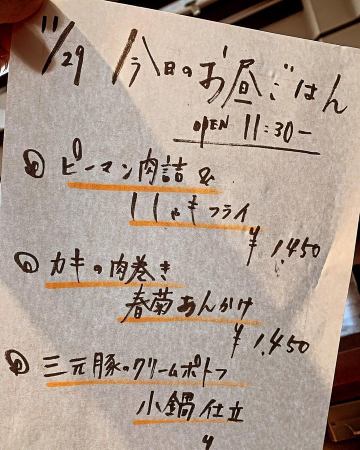 11/29 今日のお昼ごはん
OPEN 11:30-
ピーマン肉詰 &
ししゃもフライ
¥ 1,450
カキの肉巻き
春菊あんかけ
¥ 1,450
三元豚のクリームポトフ
小鍋仕立